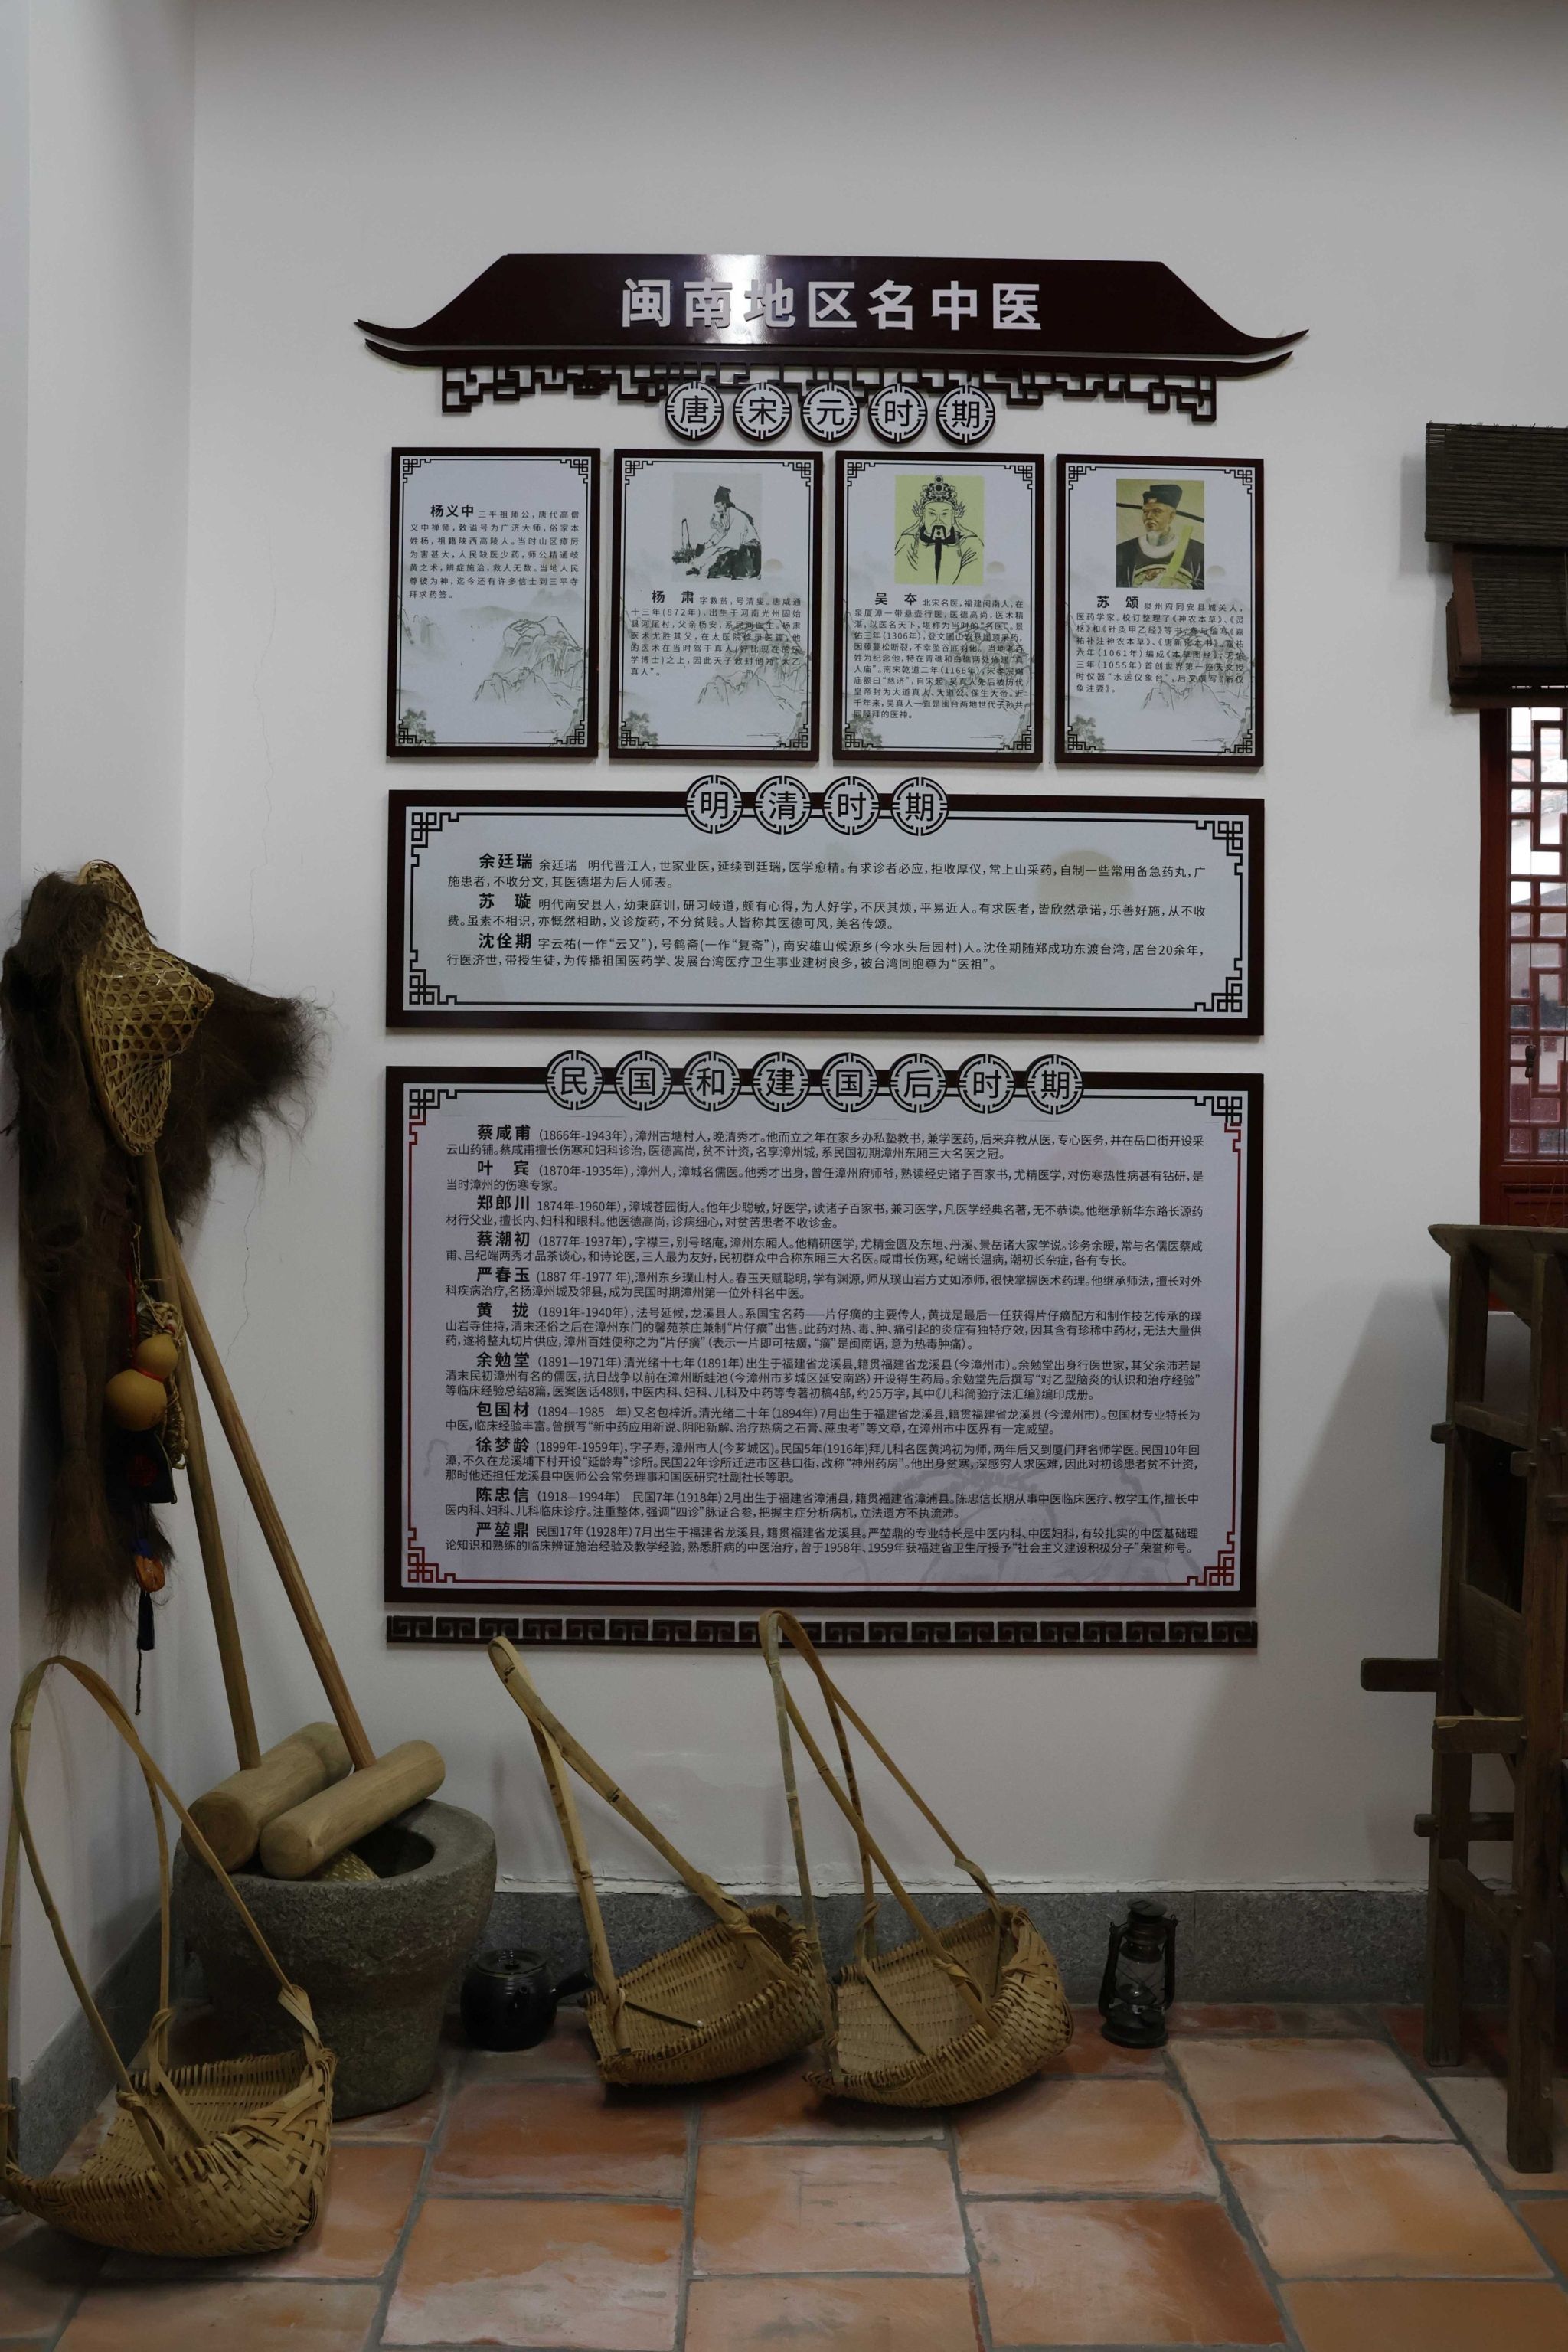 闽南地区名中医
唐宋元时期
杨义中 三平祖师公,唐代高僧
义中禅师,敕谥号为广济大师,俗家本
姓杨,祖籍陕西高陵人。当时山区瘴疠
为害甚大,人民缺医少药,师公精通岐
黄之术,辨症施治,救人无数。当地人民
尊彼为神,迄今还有许多信士到三平寺
拜求药签。
杨 肃 字救贫,号清叟。唐咸通
十三年(872年),出生于河南光州固始
县河尾村,父亲杨安,系民间医生。杨肃
医术尤胜其父,在太医院收录医籍,他
的医术在当时驾于真人(好比现在的医
学博士)之上,因此天子敕封他为“太乙
真人”。
吴 夲 北宋名医,福建闽南人,在
泉厦漳一带悬壶行医,医德高尚,医术精
湛,以医名天下,堪称为当时的“名医”。景
佑三年(1306年),登文圃山龙池崖顶采药,
因藤蔓松断裂,不幸坠谷崖羽化。当地老百
姓为纪念他,特在青礁和白礁两处修建“真
人庙”。南宋乾道二年(1166年),宋孝宗赐
庙额曰“慈济”,自宋起,吴真人先后被历代
皇帝封为大道真人、大道公、保生大帝。近
千年来,吴真人一直是闽台两地世代子孙共
同厚拜的医神。
苏 颂 泉州府同安县城关人,
医药学家。校订整理了《神农本草》、《灵
枢》和《针灸甲乙经》等书,参与编写《嘉
祐补注神农本草》、《唐新修本书》。嘉祐
六年(1061年)编成《本草图经》;元佑
三年(1055年)首创世界第一座天文授
时仪器“水运仪象台”,后又撰写《新仪
象注要》。
明清时期
余廷瑞 余廷瑞 明代晋江人,世家业医,延续到廷瑞,医学愈精。有求诊者必应,拒收厚仪,常上山采药,自制一些常用备急药丸,广
施患者,不收分文,其医德堪为后人师表。
苏 璇 明代南安县人,幼秉庭训,研习岐道,颇有心得,为人好学,不厌其烦,平易近人。有求医者,皆欣然承诺,乐善好施,从不收
费。虽素不相识,亦慨然相助,义诊旋药,不分贫贱。人皆称其医德可风,美名传颂。
沈佺期 字云祐(一作“云又”),号鹤斋(一作“复斋”),南安雄山候源乡(今水头后园村)人。沈佺期随郑成功东渡台湾,居台20余年,
行医济世,带授生徒,为传播祖国医药学、发展台湾医疗卫生事业建树良多,被台湾同胞尊为“医祖”。
民国和建国后时期
蔡咸甫 (1866年-1943年),漳州古塘村人,晚清秀才。他而立之年在家乡办私塾教书,兼学医药,后来弃教从医,专心医务,并在岳口街开设采
云山药铺。蔡咸甫擅长伤寒和妇科诊治,医德高尚,贫不计资,名享漳州城,系民国初期漳州东厢三大名医之冠。
叶 宾 (1870年-1935年),漳州人,漳城名儒医。他秀才出身,曾任漳州府师爷,熟读经史诸子百家书,尤精医学,对伤寒热性病甚有钻研,是
当时漳州的伤寒专家。
郑郎川 1874年-1960年),漳城苍园街人。他年少聪敏,好医学,读诸子百家书,兼习医学,凡医学经典名著,无不恭读。他继承新华东路长源药
材行父业,擅长内、妇科和眼科。他医德高尚,诊病细心,对贫苦患者不收诊金。
蔡潮初 (1877年-1937年),字襟三,别号略庵,漳州东厢人。他精研医学,尤精金匮及东垣、丹溪、景岳诸大家学说。诊务余暖,常与名儒医蔡咸
甫、吕纪端两秀才品茶谈心,和诗论医,三人最为友好,民初群众中合称东厢三大名医。咸甫长伤寒,纪端长温病,潮初长杂症,各有专长。
严春玉 (1887 年-1977 年),漳州东乡璞山村人。春玉天赋聪明,学有渊源,师从璞山岩方丈如添师,很快掌握医术药理。他继承师法,擅长对外
科疾病治疗,名扬漳州城及邻县,成为民国时期漳州第一位外科名中医。
黄 拢 (1891年-1940年),法号延候,龙溪县人。系国宝名药——片仔癀的主要传人,黄拢是最后一任获得片仔癀配方和制作技艺传承的璞
山岩寺住持,清末还俗之后在漳州东门的馨苑茶庄兼制“片仔癀”出售。此药对热、毒、肿、痛引起的炎症有独特疗效,因其含有珍稀中药材,无法大量供
药,遂将整丸切片供应,漳州百姓便称之为“片仔癀”(表示一片即可祛癀,“癀”是闽南语,意为热毒肿痛)。
余勉堂 (1891—1971年)清光绪十七年(1891年)出生于福建省龙溪县,籍贯福建省龙溪县(今漳州市)。余勉堂出身行医世家,其父余沛若是
清末民初漳州有名的儒医,抗日战争以前在漳州断蛙池(今漳州市芗城区延安南路)开设得生药局。余勉堂先后撰写“对乙型脑炎的认识和治疗经验”
等临床经验总结8篇,医案医话48则,中医内科、妇科、儿科及中药等专著初稿4部,约25万字,其中《儿科简验疗法汇编》编印成册。
包国材 (1894—1985 年)又名包梓沂。清光绪二十年(1894年)7月出生于福建省龙溪县,籍贯福建省龙溪县(今漳州市)。包国材专业特长为
中医,临床经验丰富。曾撰写“新中药应用新说、阴阳新解、治疗热病之石膏、蔗虫考”等文章,在漳州市中医界有一定威望。
徐梦龄 (1899年-1959年),字子寿,漳州市人(今芗城区)。民国5年(1916年)拜儿科名医黄鸿初为师,两年后又到厦门拜名师学医。民国10年回
漳,不久在龙溪埔下村开设“延龄寿”诊所。民国22年诊所迁进市区巷口街,改称“神州药房”。他出身贫寒,深感穷人求医难,因此对初诊患者贫不计资,
那时他还担任龙溪县中医师公会常务理事和国医研究社副社长等职。
陈忠信 (1918—1994年) 民国7年(1918年)2月出生于福建省漳浦县,籍贯福建省漳浦县。陈忠信长期从事中医临床医疗、教学工作,擅长中
医内科、妇科、儿科临床诊疗。注重整体,强调“四诊”脉证合参,把握主症分析病机,立法遣方不执流沛。
严堃鼎 民国17年(1928年)7月出生于福建省龙溪县,籍贯福建省龙溪县。严堃鼎的专业特长是中医内科、中医妇科,有较扎实的中医基础理
论知识和熟练的临床辨证施治经验及教学经验,熟悉肝病的中医治疗,曾于1958年、1959年获福建省卫生厅授予“社会主义建设积极分子”荣誉称号。